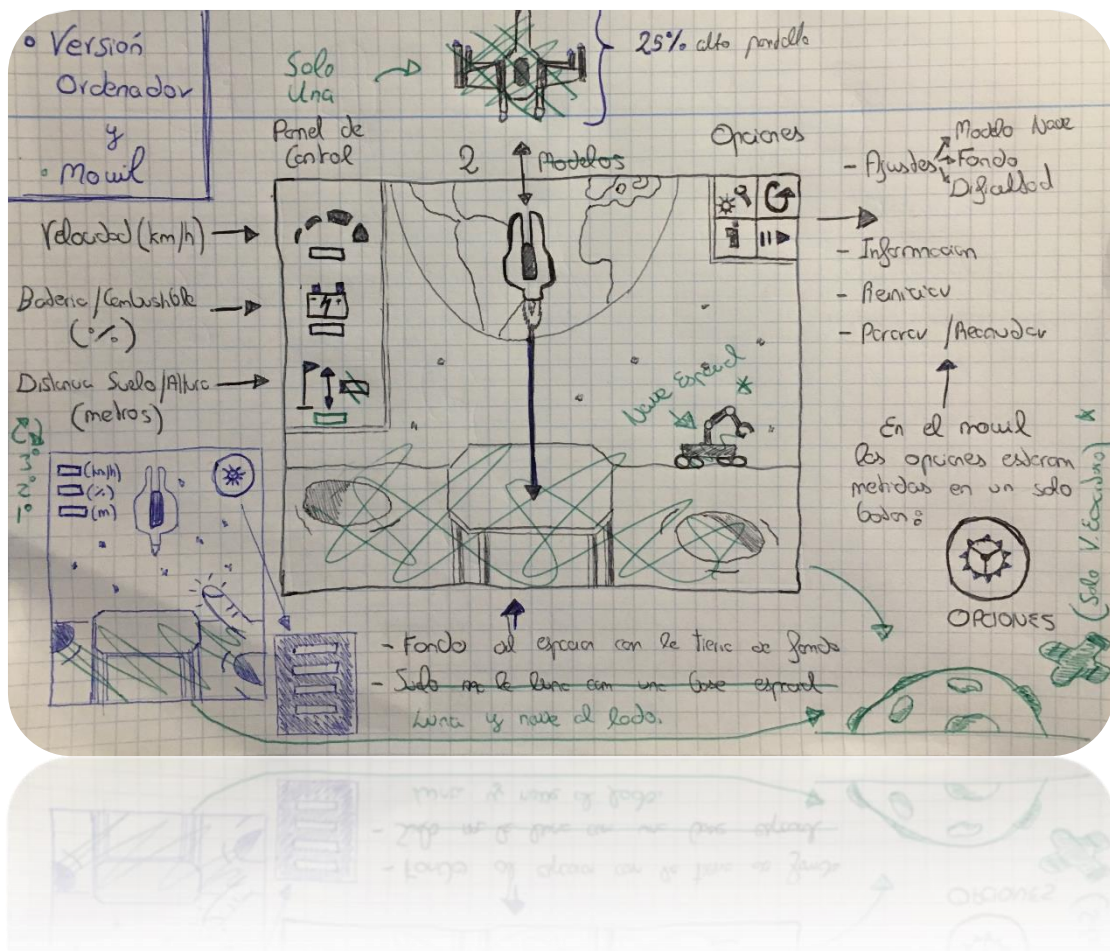 • Versión
Ordenador
y
• Movil
Solo
Una
25% alto pantalla
Panel de
Control
2 Modelos
Opciones
- Ajustes
Modelo Nave
Fondo
Dificultad
- Información
- Reiniciar
- Pararar / Reanudar
Velocidad (km/h)
Bateria/Combustible
(%)
Distancia Suelo/Altura
(metros)
Nave Espacial *
En el movil
las opciones estaran
metidas en un solo
boton:
OPCIONES
(km/h)
(%)
(m)
- Fondo al espacio con la tierra de fondo
- Suelo en la luna con una base espacial
Luna y nave al lado.
* (Solo V. Escritorio)